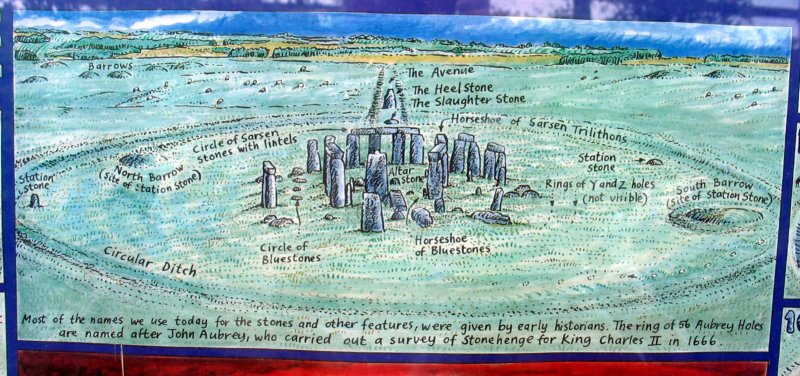 Barrows
The Avenue
The Heel Stone
The Slaughter Stone
Horseshoe of Sarsen Trilithons
Circle of Sarsen
Stones with lintels
North Barrow
(site of Station Stone)
Station
Stone
Altar
Stone
Station
Stone
Rings of Y and Z holes
(not visible)
South Barrow
(Site of Station Stone)
Circle of
Bluestones
Horseshoe
of Bluestones
Circular Ditch
Most of the names we use today for the stones and other features, were given by early historians. The ring of 56 Aubrey Holes
are named after John Aubrey, who carried out a survey of Stonehenge for King Charles II in 1666.